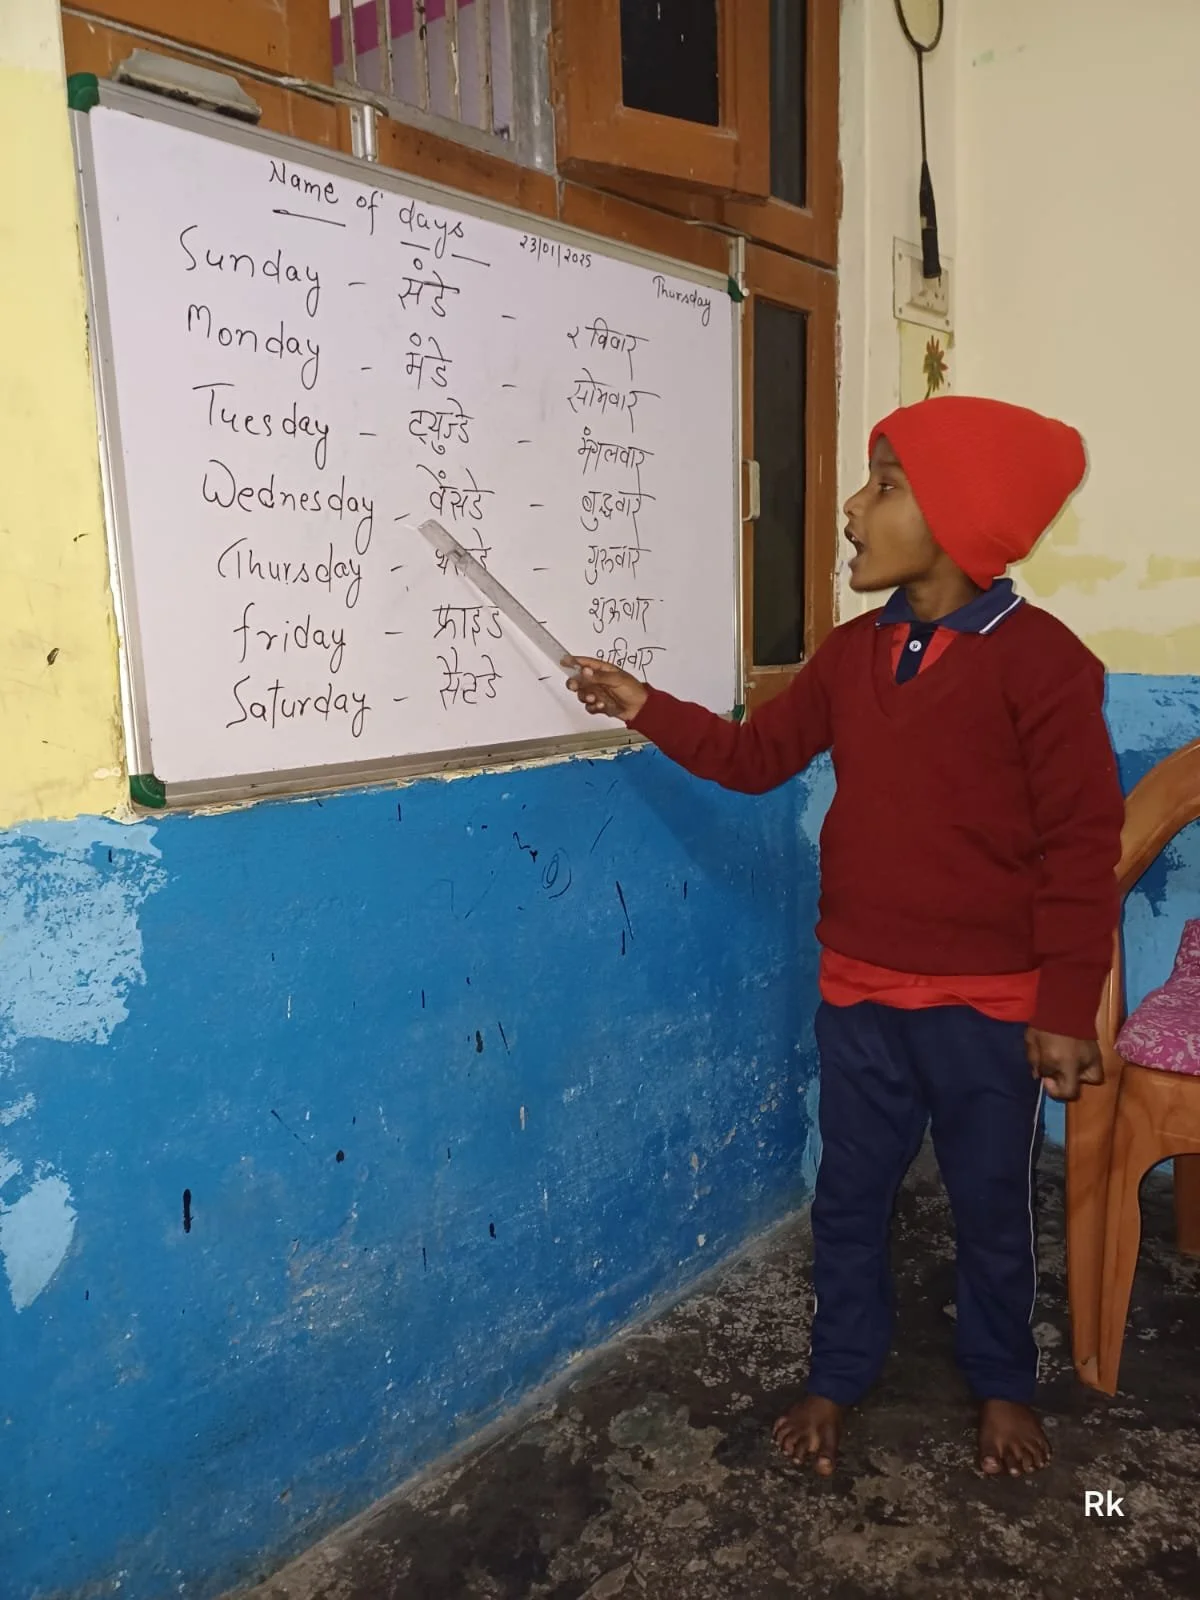 Name of days
23/01/2025
Thursday
Sunday - संडे - रविवार
Monday - मंडे - सोमवार
Tuesday - ट्युज्डे - मंगलवार
Wednesday - वेंसडे - बुद्धवार
Thursday - - गुरुवार
friday - फ्राइडे - शुक्रवार
Saturday - सैटडे - शनिवार
Rk